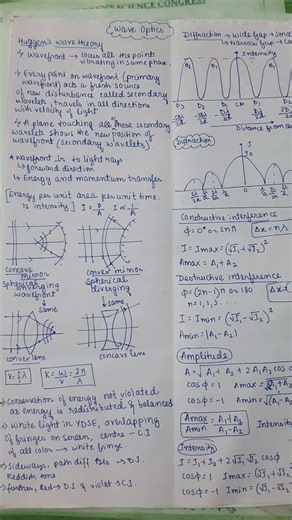 SCIENCE CONGRESS
Wave Optics
Huygens wave theory
→ wavefront → locus all the point
vibrating in same phase
→ Every point on wavefront (primary
wavefront) acts a fresh source
of new disturbance called secondary
wavelets, travels in all directions
with velocity of light
→ A plane touching all these secondary
wavelets shows the new position of
wavefront (secondary wavelets)
* Wavefront ⊥r to light rays
→ forward direction
→ Energy and momentum transfer
[Energy per unit area per unit time.
is intensity] I = P/A I ∝ 1/
concave mirror
spherical
converging
wavefront
convex mirror
spherical
diverging
→ same
→ same
convex lens
concave lens
V = fλ
K = w/v = 2π/λ
→ Conservation of energy not violated
as energy is redistributed & balanced
→ White light in YDSE, overlapping
of fringes on screen, centre → C.I
of all color → white fringe
→ Sideways, path diff → D.I
Reddish tone
→ further, Red → D.I & violet → C.I
Diffraction → wide gap →
→ Narrow gap →
Intensity
B2 B1 B1 B2
D3 D2 D1 CM D1 D2
Distance from
Diffraction
I
I0
Constructive interference
ϕ = 0° or 2nπ Δx = nλ
I = Imax = (√I1 + √I2)²
Amax = A1 + A2
Destructive interference
ϕ = (2n-1)π or 180
n = 1, 2, 3 ...
I = Imin = (√I1 - √I2)²
Amin = |A1 - A2|
Amplitude
A = √A1² + A2² + 2A1A2 cos
cosϕ = 1 Amax =
cosϕ = -1 Amin =
Amax/Amin = A1 + A2/A1 - A2
Intensity
I = I1 + I2 + 2√I1 √I2 cosϕ
cosϕ = 1 Imax = (√I1 +
cosϕ = -1 Imin = (√I1 -